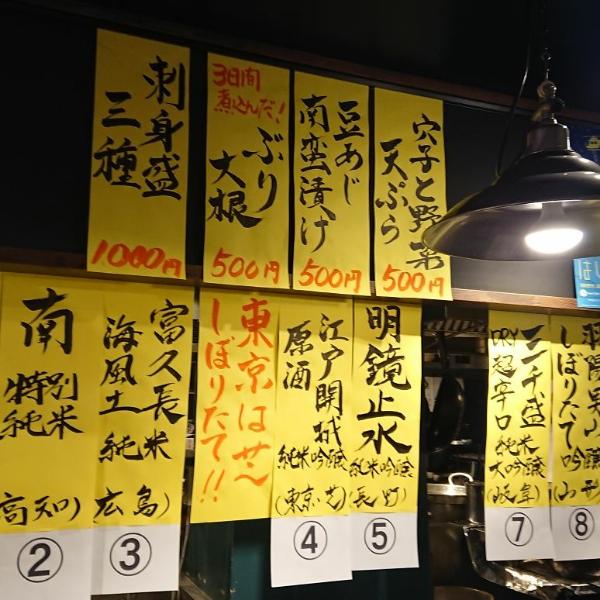 穴子と野菜
天ぷら
500円
豆あじ
南蛮漬け
500円
3日間
煮込んだ!
ぶり
大根
500円
刺身盛
三種
1000円
羽陽男山
しぼりたて吟醸
(山形
⑧
三千盛
DRY超辛口
純米
大吟醸
(岐阜)
⑦
明鏡止水
純米吟醸
(長野)
⑤
江戸開城
原酒
純米吟醸
(東京・芝)
④
東京は芝〜
しぼりたて!!
富久長
海風土
純米
(広島)
③
南
特別
純米
高知)
②